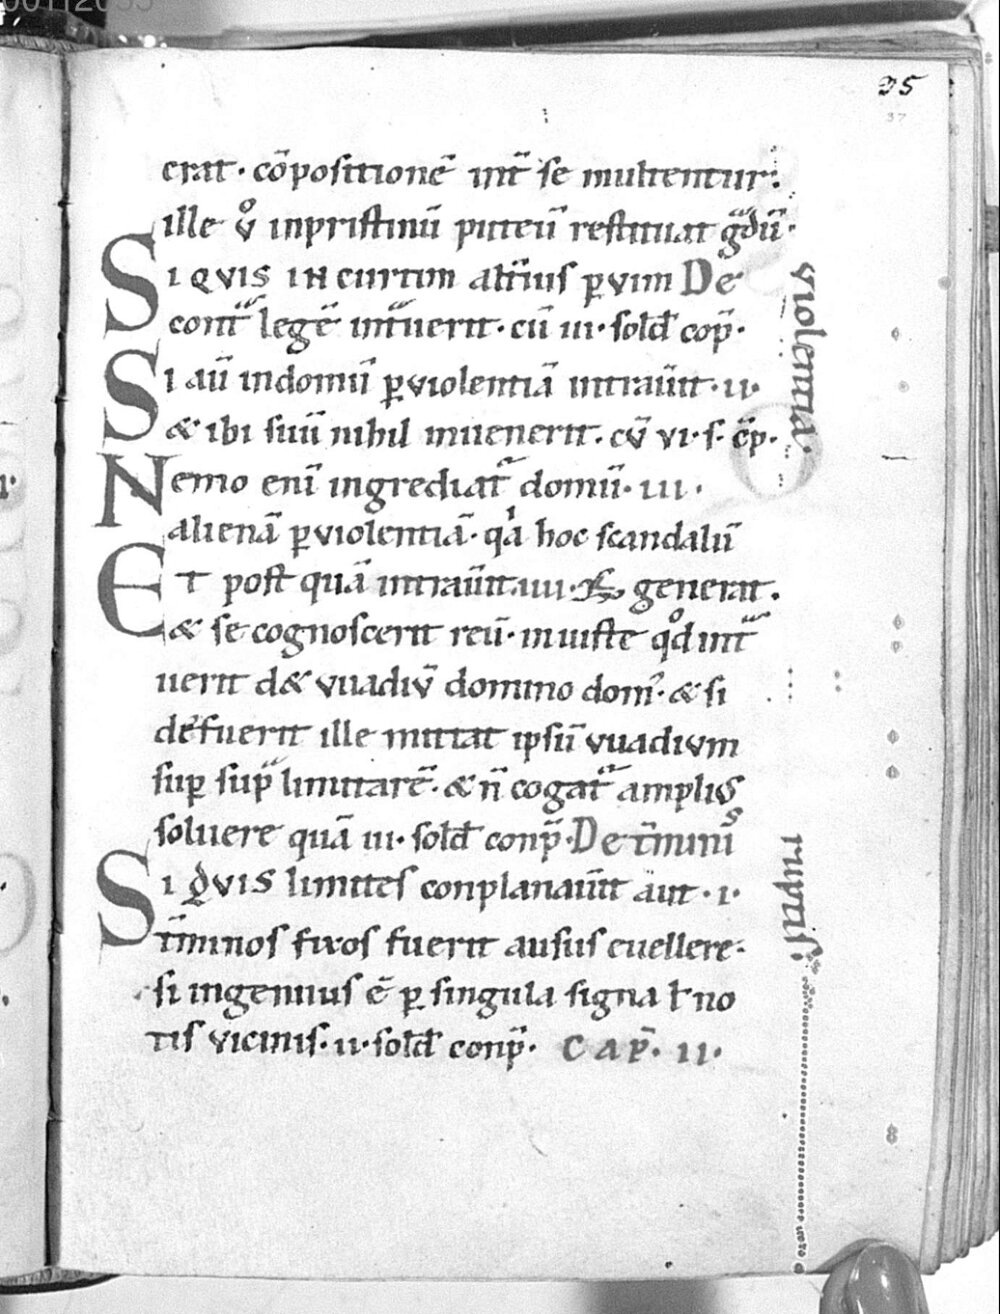 35
37
erat· cōpositionē int̄ se multentur·
ille v̊ inpristinū puteū restituat gͣdū·
SI QVIS IN curtim alt̄ius ꝑvim De violentia·
contͣ legē intͣuerit· cū iii· sold̄ cop̄·
SI aū indomū ꝑviolentiā intraūit· ii·
& ibi suū nihil inuenerit· cū vi· s· cp̄·
Nemo enī ingrediat᷑ domū· iii·
alienā ꝑviolentiā· qͥa hoc scandalū
ET post quā intraūit· iiii· generat·
& se cognoscerit reū· iniuste qͦd intͣ
uerit d& vuadiū domino dom᷒· & si
defuerit ille mittat ipsū vuadivm
suꝑ supͣ limitarē· & n̄ cogat᷑ amplius
soluere quā iii· sold̄ conp̄· De t̄minis ruptis·
SI QVIS limites conplanaūit aūt· i·
t̄minos fixos fuerit ausus euellere·
si ingenuus ē ꝑ singula signa ł no
tis vicinis· ii· sold̄ conp̄· CAP̄· II·